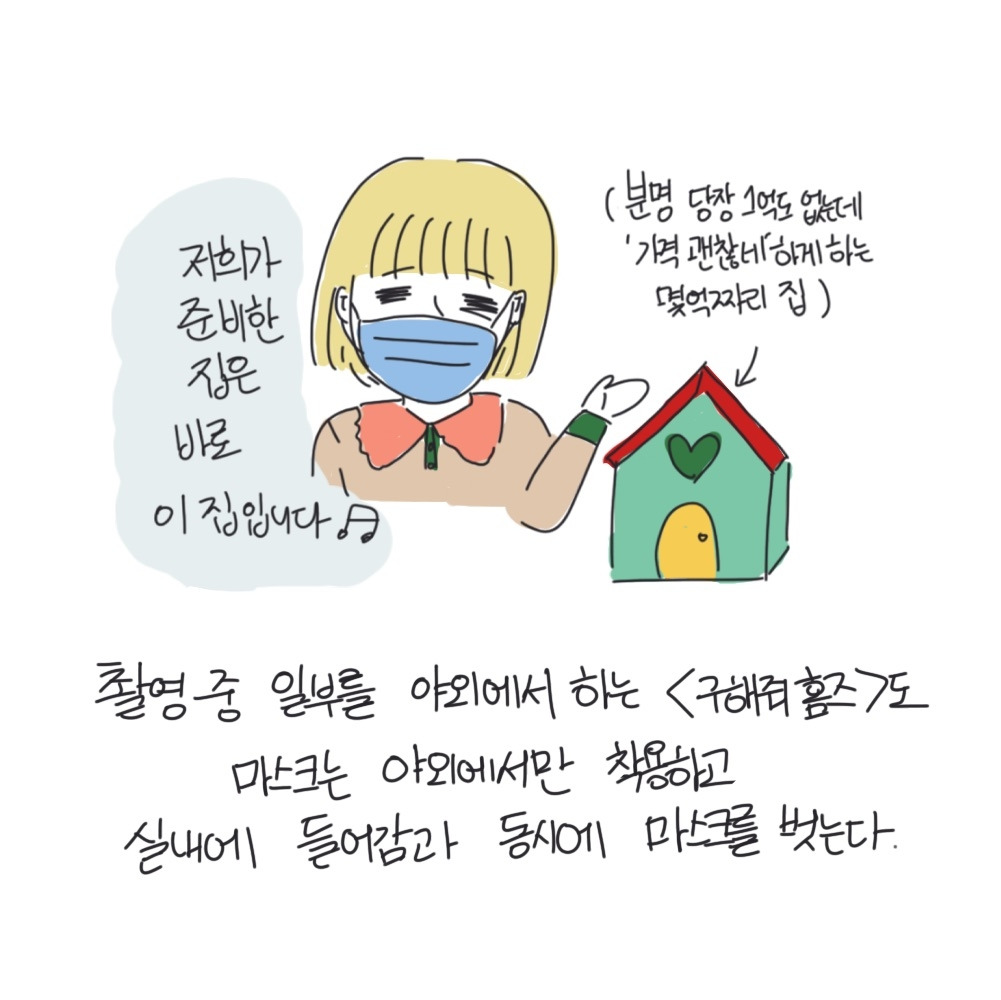 저희가
준비한
집은
바로
이 집입니다♫
( 분명 당장 1억도 없는데
'가격 괜찮네' 하게 하는
몇억짜리 집 )
촬영 중 일부를 야외에서 하는 <구해줘 홈즈>도
마스크는 야외에서만 착용하고
실내에 들어감과 동시에 마스크를 벗는다.